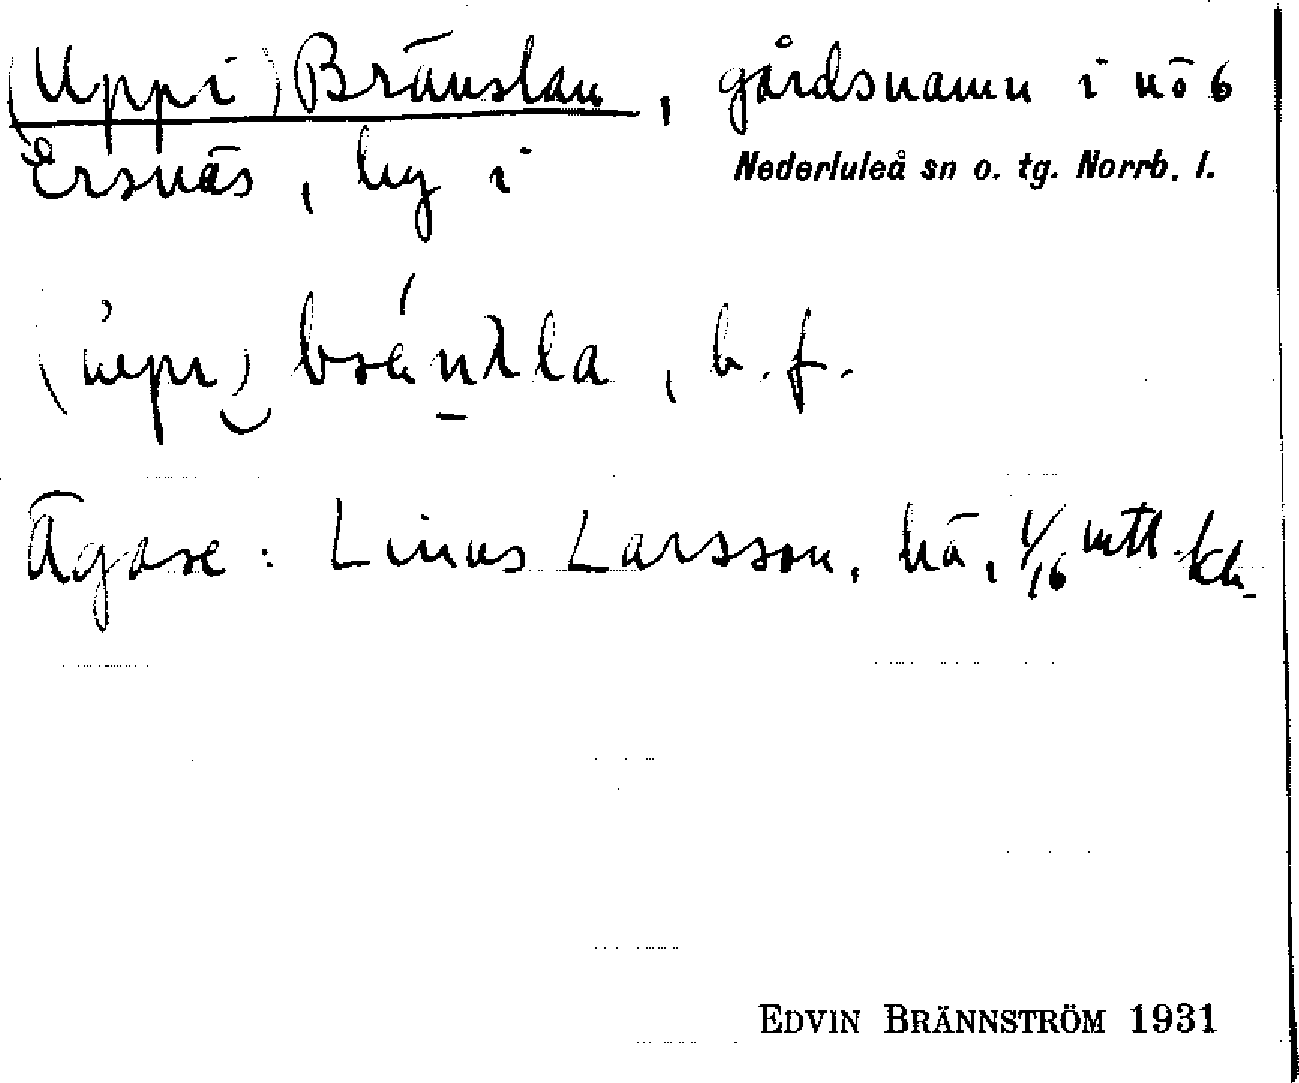 (Uppi) Bränslan, gårdsnamn i nö b
Ersnäs, by i Nederluleå sn o. tg. Norrb. l.
b. f.
Ägare: Linus Larsson, hä, 1/16 mtl
EDVIN BRÄNNSTRÖM 1931